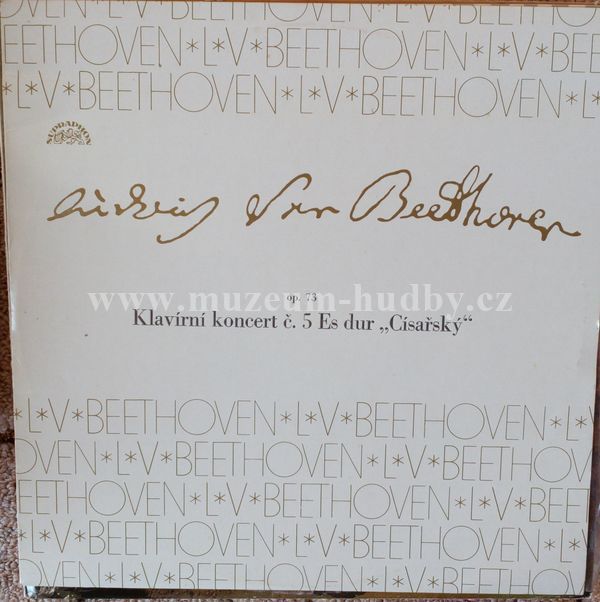 BEETHOVEN*L*V*BEETHOVEN
EETHOVEN*L*V*BEETHOVEN*L*V*BEE
*L*V*BEETHOVEN*L*V*BEETHOVEN*
SUPRAPHON
Ludwig van Beethoven
op. 73
www.muzeum-hudby.cz
Klavírní koncert č. 5 Es dur „Císařský“
*L*V*BEETHOVEN*L*V*BEETHOVEN*L*V
OVEN*L*V*BEETHOVEN*L*V*BEETHO
EETHOVEN*L*V*BEETHOVEN*L*V*BEET
*L*V*BEETHOVEN*L*V*BEETHOVEN*L
OVEN*L*V*BEETHOVEN*L*V*BEETH